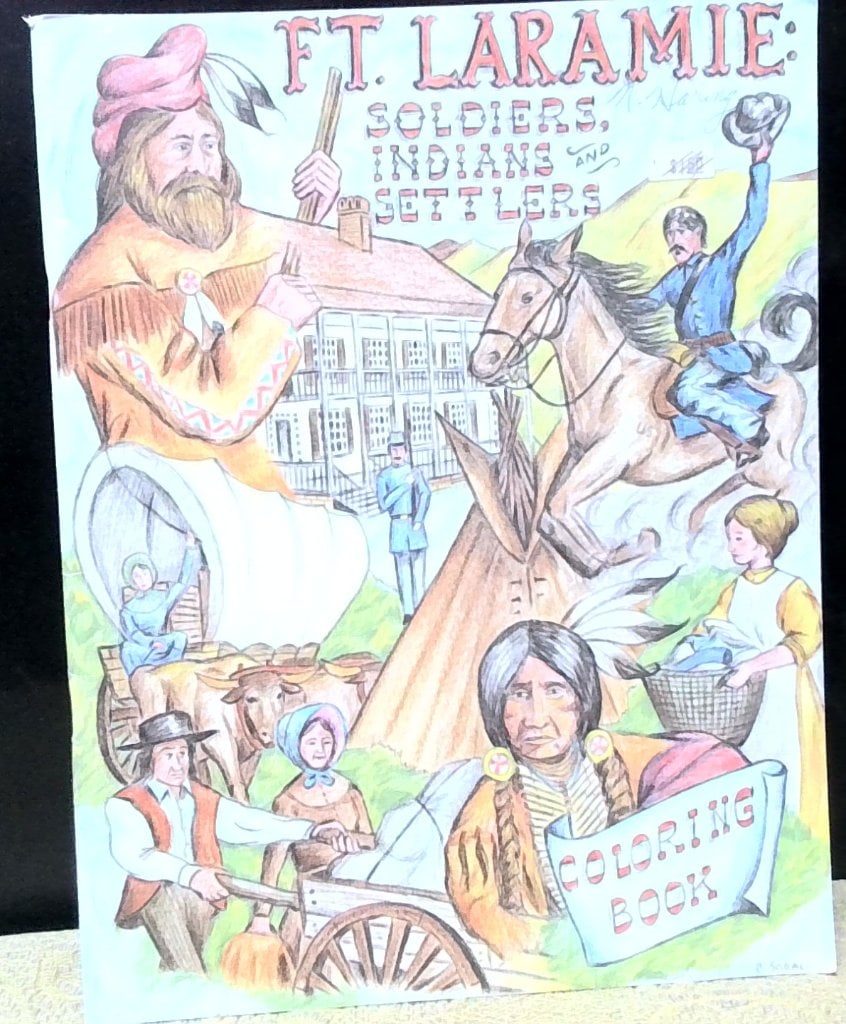 FT. LARAMIE:
SOLDIERS,
INDIANS AND
SETTLERS
COLORING
BOOK